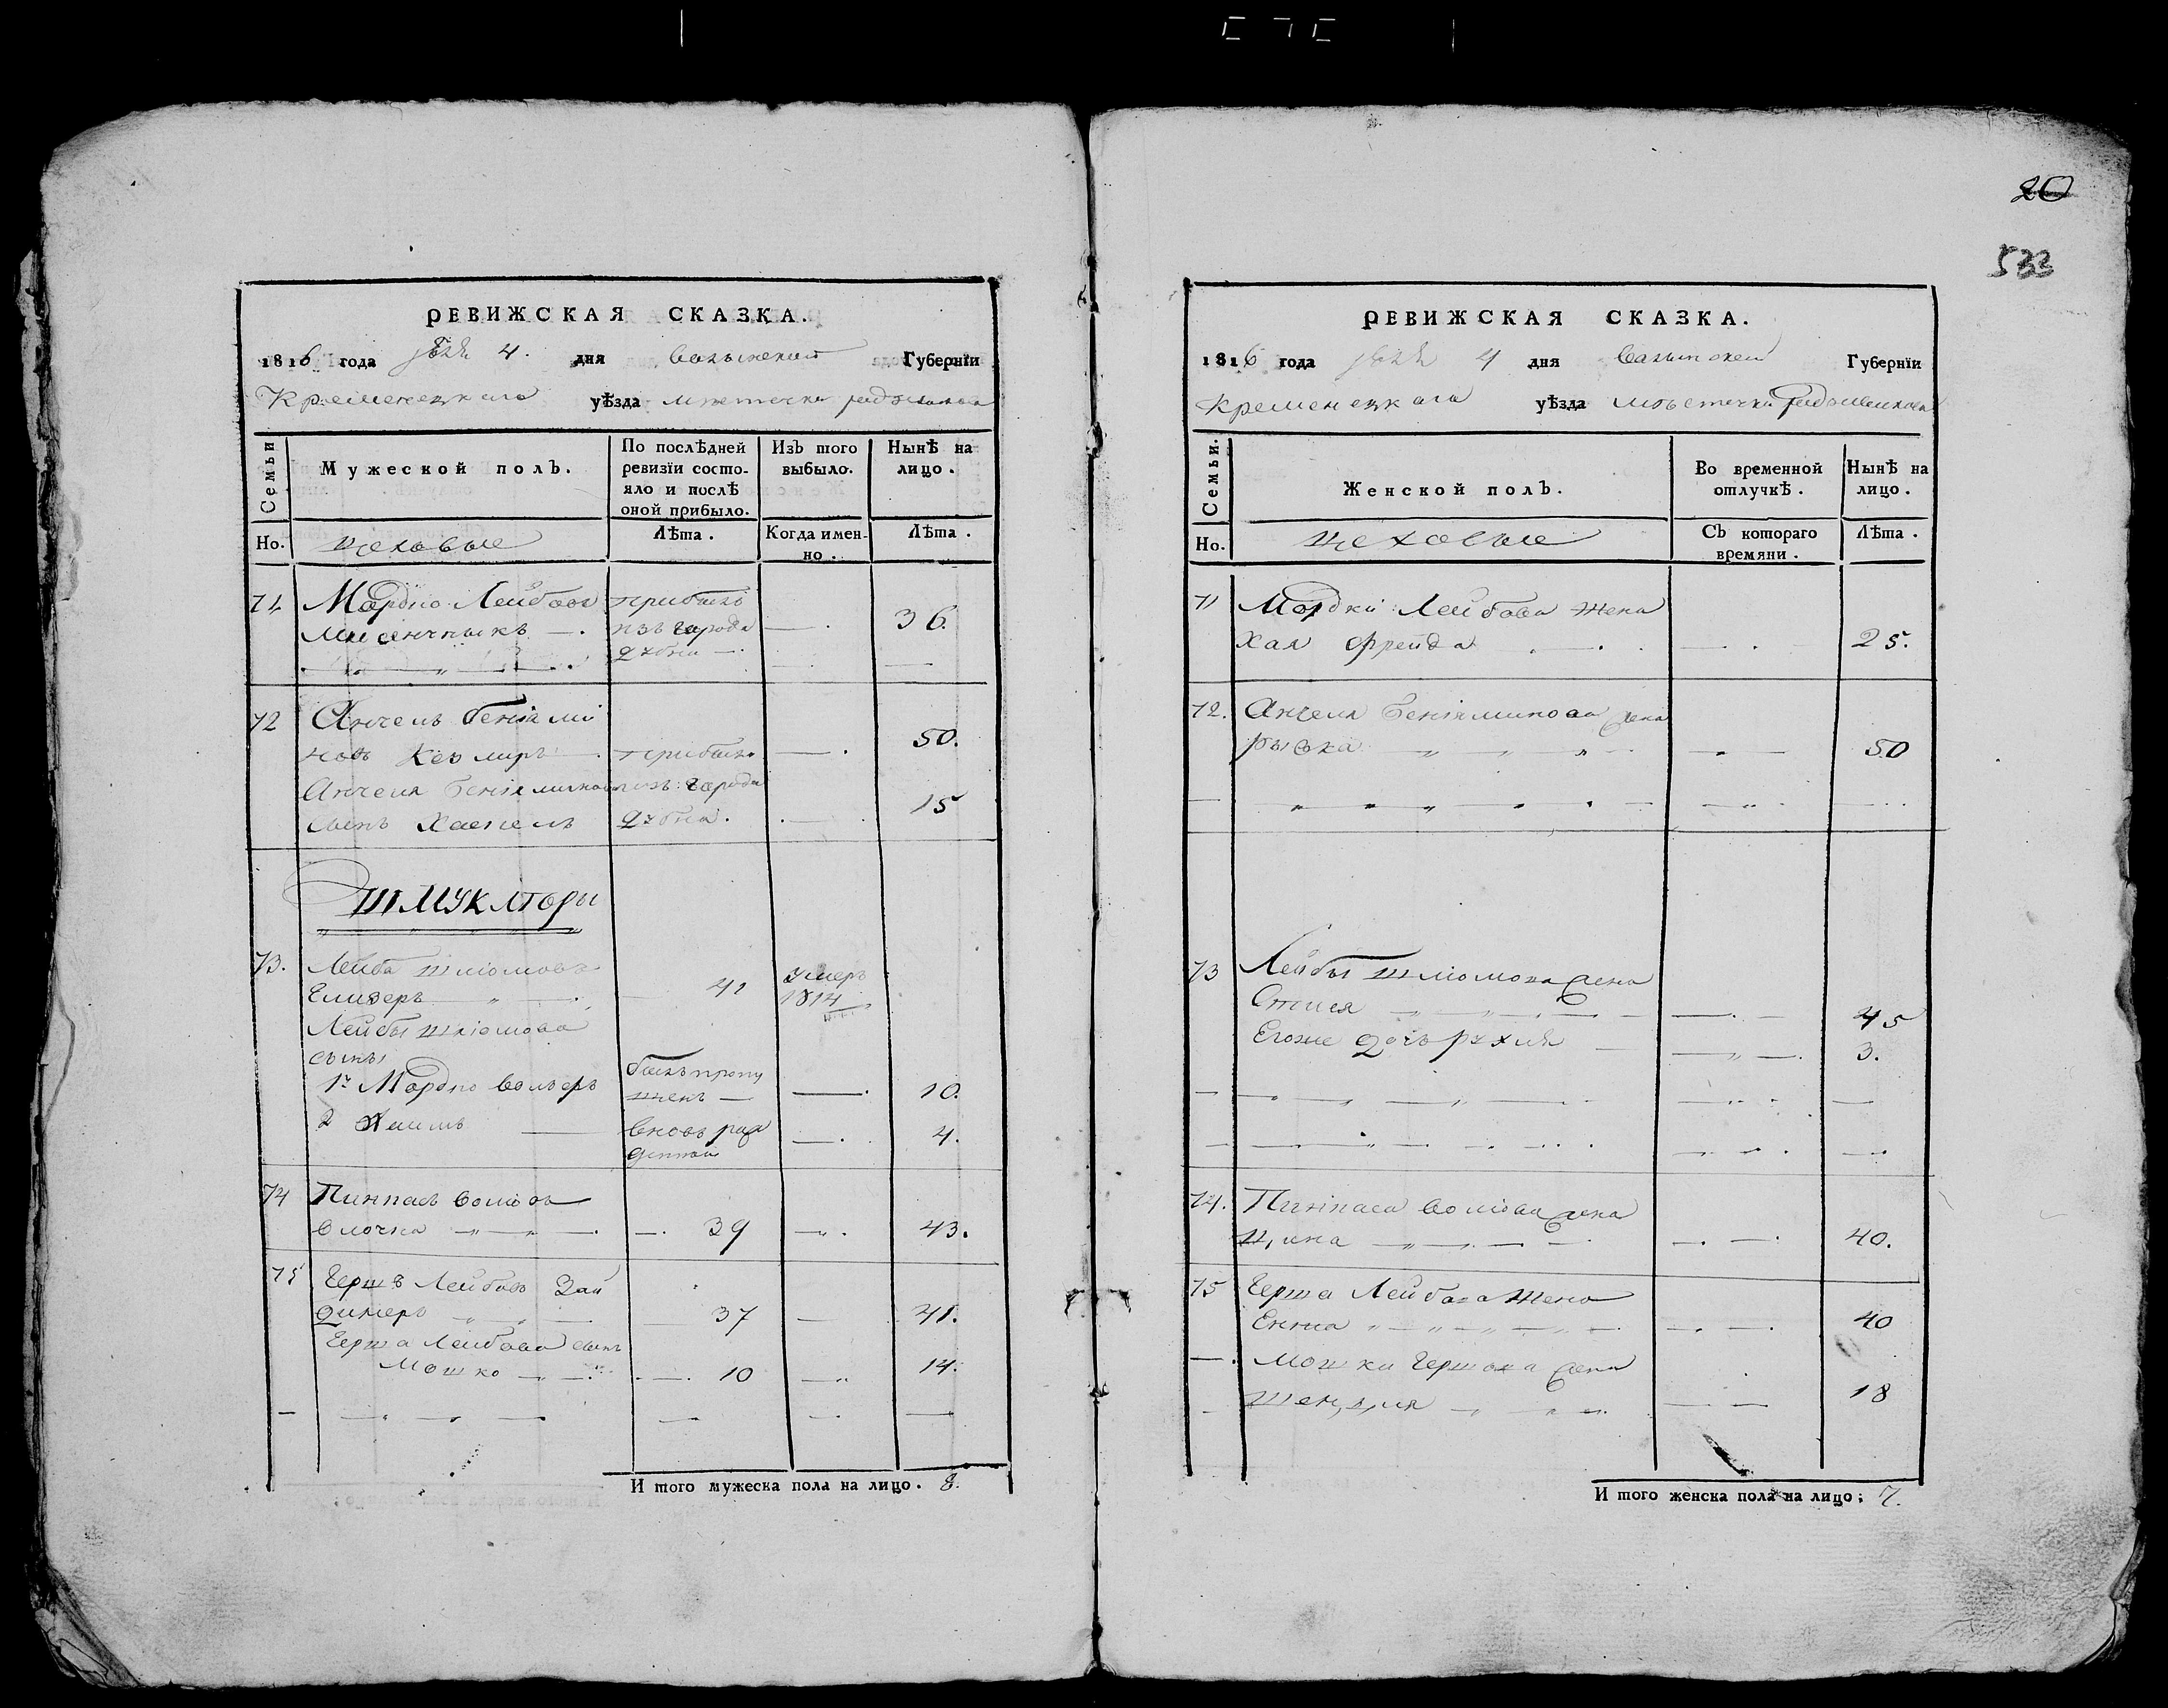 20
533
РЕВИЖСКАЯ СКАЗКА.
1816 года 4. дня Волынской Губернїи
Кременецкаго уѣзда местечка
Семьи
Мужеской полъ.
По послѣдней ревизїи состояло и послѣ оной прибыло.
Изъ того выбыло.
Нынѣ на лицо.
Но. цеховые
Лѣта.
Когда именно.
Лѣта.
71 Мордко Лейбовъ прибылъ
изъ города — 36.
Дубна —
72 Анчель Бенiями
новъ прибылъ — 50.
Анчеля Бенiяминова изъ города
сынъ Дубна. 15
ШМУКЛТОРЫ
73. Лейба Шлiомовъ умеръ
41 1814
Лейбы Шлiомова
сыны
1й Мордко Вольеръ былъ пропу
щенъ — 10.
2 Хаимъ вновь рож
денной 4.
74 Пинкасъ Волiовъ
39 43.
75 Гершъ Лейбовъ Зай
37 41.
Герша Лейбова сынъ
Мошко 10 14.
И того мужеска пола на лицо. 8.
РЕВИЖСКАЯ СКАЗКА.
1816 года 4 дня Волынской Губернїи
Кременецкаго уѣзда мѣстечка
Семьи.
Женской полъ.
Во временной отлучкѣ.
Нынѣ на лицо.
Но. цеховые
Съ котораго времяни.
Лѣта.
71 Мордки Лейбова жена
Хая Фрейда 25.
72. Анчеля Бенiяминова жена
Рыська 50
73 Лейбы Шлiомова жена
45
Егоже дочь Рухля 3.
74. Пинкаса Волiова жена
40.
75 Герша Лейбова жена
Ента 40
Мошки Гершова жена
Шендля 18
И того женска пола на лицо; 7.